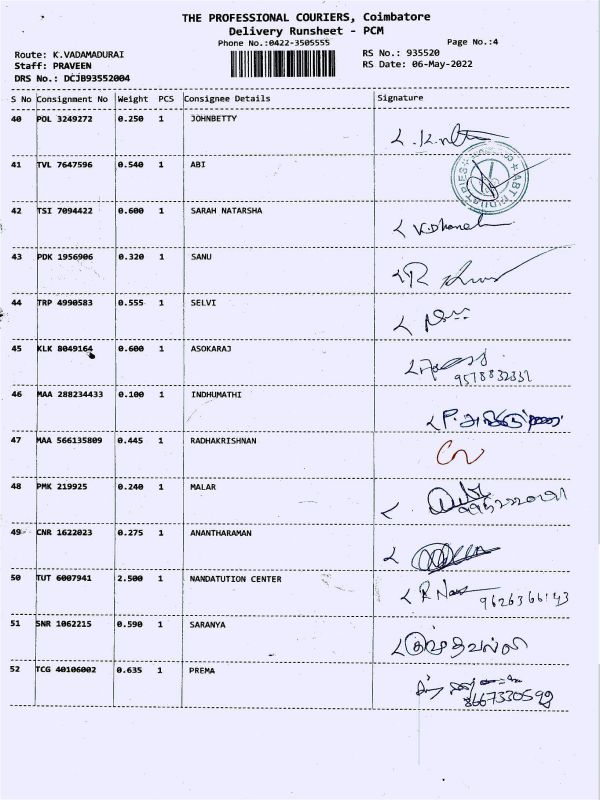 THE PROFESSIONAL COURIERS, Coimbatore
Delivery Runsheet - PCM
Phone No.:0422-3505555 Page No.:4
Route: K.VADAMADURAI RS No.: 935520
Staff: PRAVEEN RS Date: 06-May-2022
DRS No.: DCJB93552004
S No Consignment No Weight PCS Consignee Details Signature
40 POL 3249272 0.250 1 JOHNBETTY
41 TVL 7647596 0.540 1 ABI
42 TSI 7094422 0.600 1 SARAH NATARSHA
43 PDK 1956906 0.320 1 SANU
44 TRP 4990583 0.555 1 SELVI
45 KLK 8049164 0.600 1 ASOKARAJ
46 MAA 288234433 0.100 1 INDHUMATHI
47 MAA 566135809 0.445 1 RADHAKRISHNAN
48 PMK 219925 0.240 1 MALAR
49 CNR 1622023 0.275 1 ANANTHARAMAN
50 TUT 6007941 2.500 1 NANDATUTION CENTER
9626366143
51 SNR 1062215 0.590 1 SARANYA
52 TCG 40106002 0.635 1 PREMA
8667330592